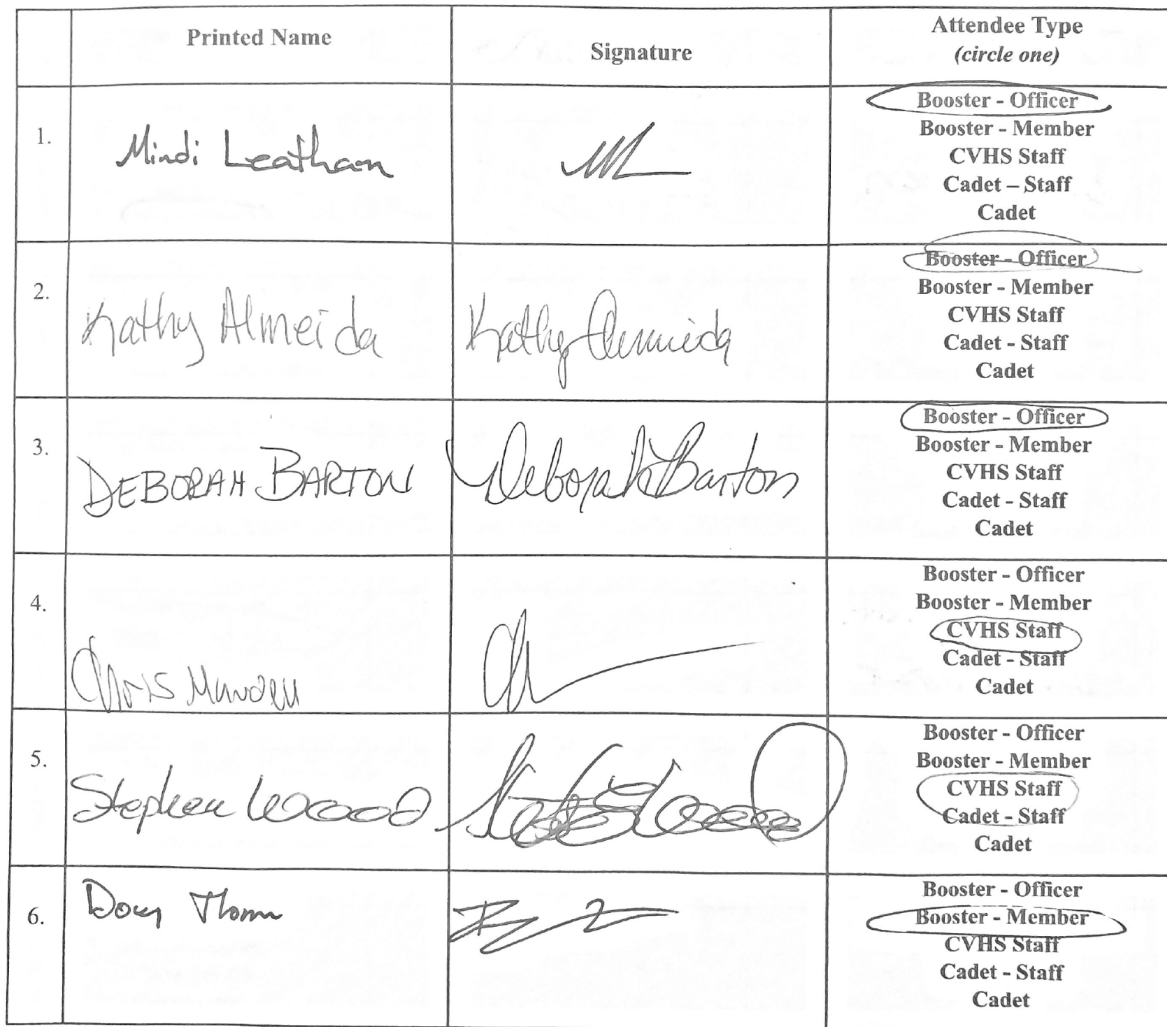 Printed Name
Signature
Attendee Type
(circle one)
1.
Mindi Leatham
Booster - Officer
Booster - Member
CVHS Staff
Cadet – Staff
Cadet
2.
Kathy Almeida
Kathy Almeida
Booster - Officer
Booster - Member
CVHS Staff
Cadet - Staff
Cadet
3.
DEBORAH BARTON
Deborah Barton
Booster - Officer
Booster - Member
CVHS Staff
Cadet - Staff
Cadet
4.
Chris
Booster - Officer
Booster - Member
CVHS Staff
Cadet - Staff
Cadet
5.
Stephen Wood
Booster - Officer
Booster - Member
CVHS Staff
Cadet - Staff
Cadet
6.
Doug
Booster - Officer
Booster - Member
CVHS Staff
Cadet - Staff
Cadet